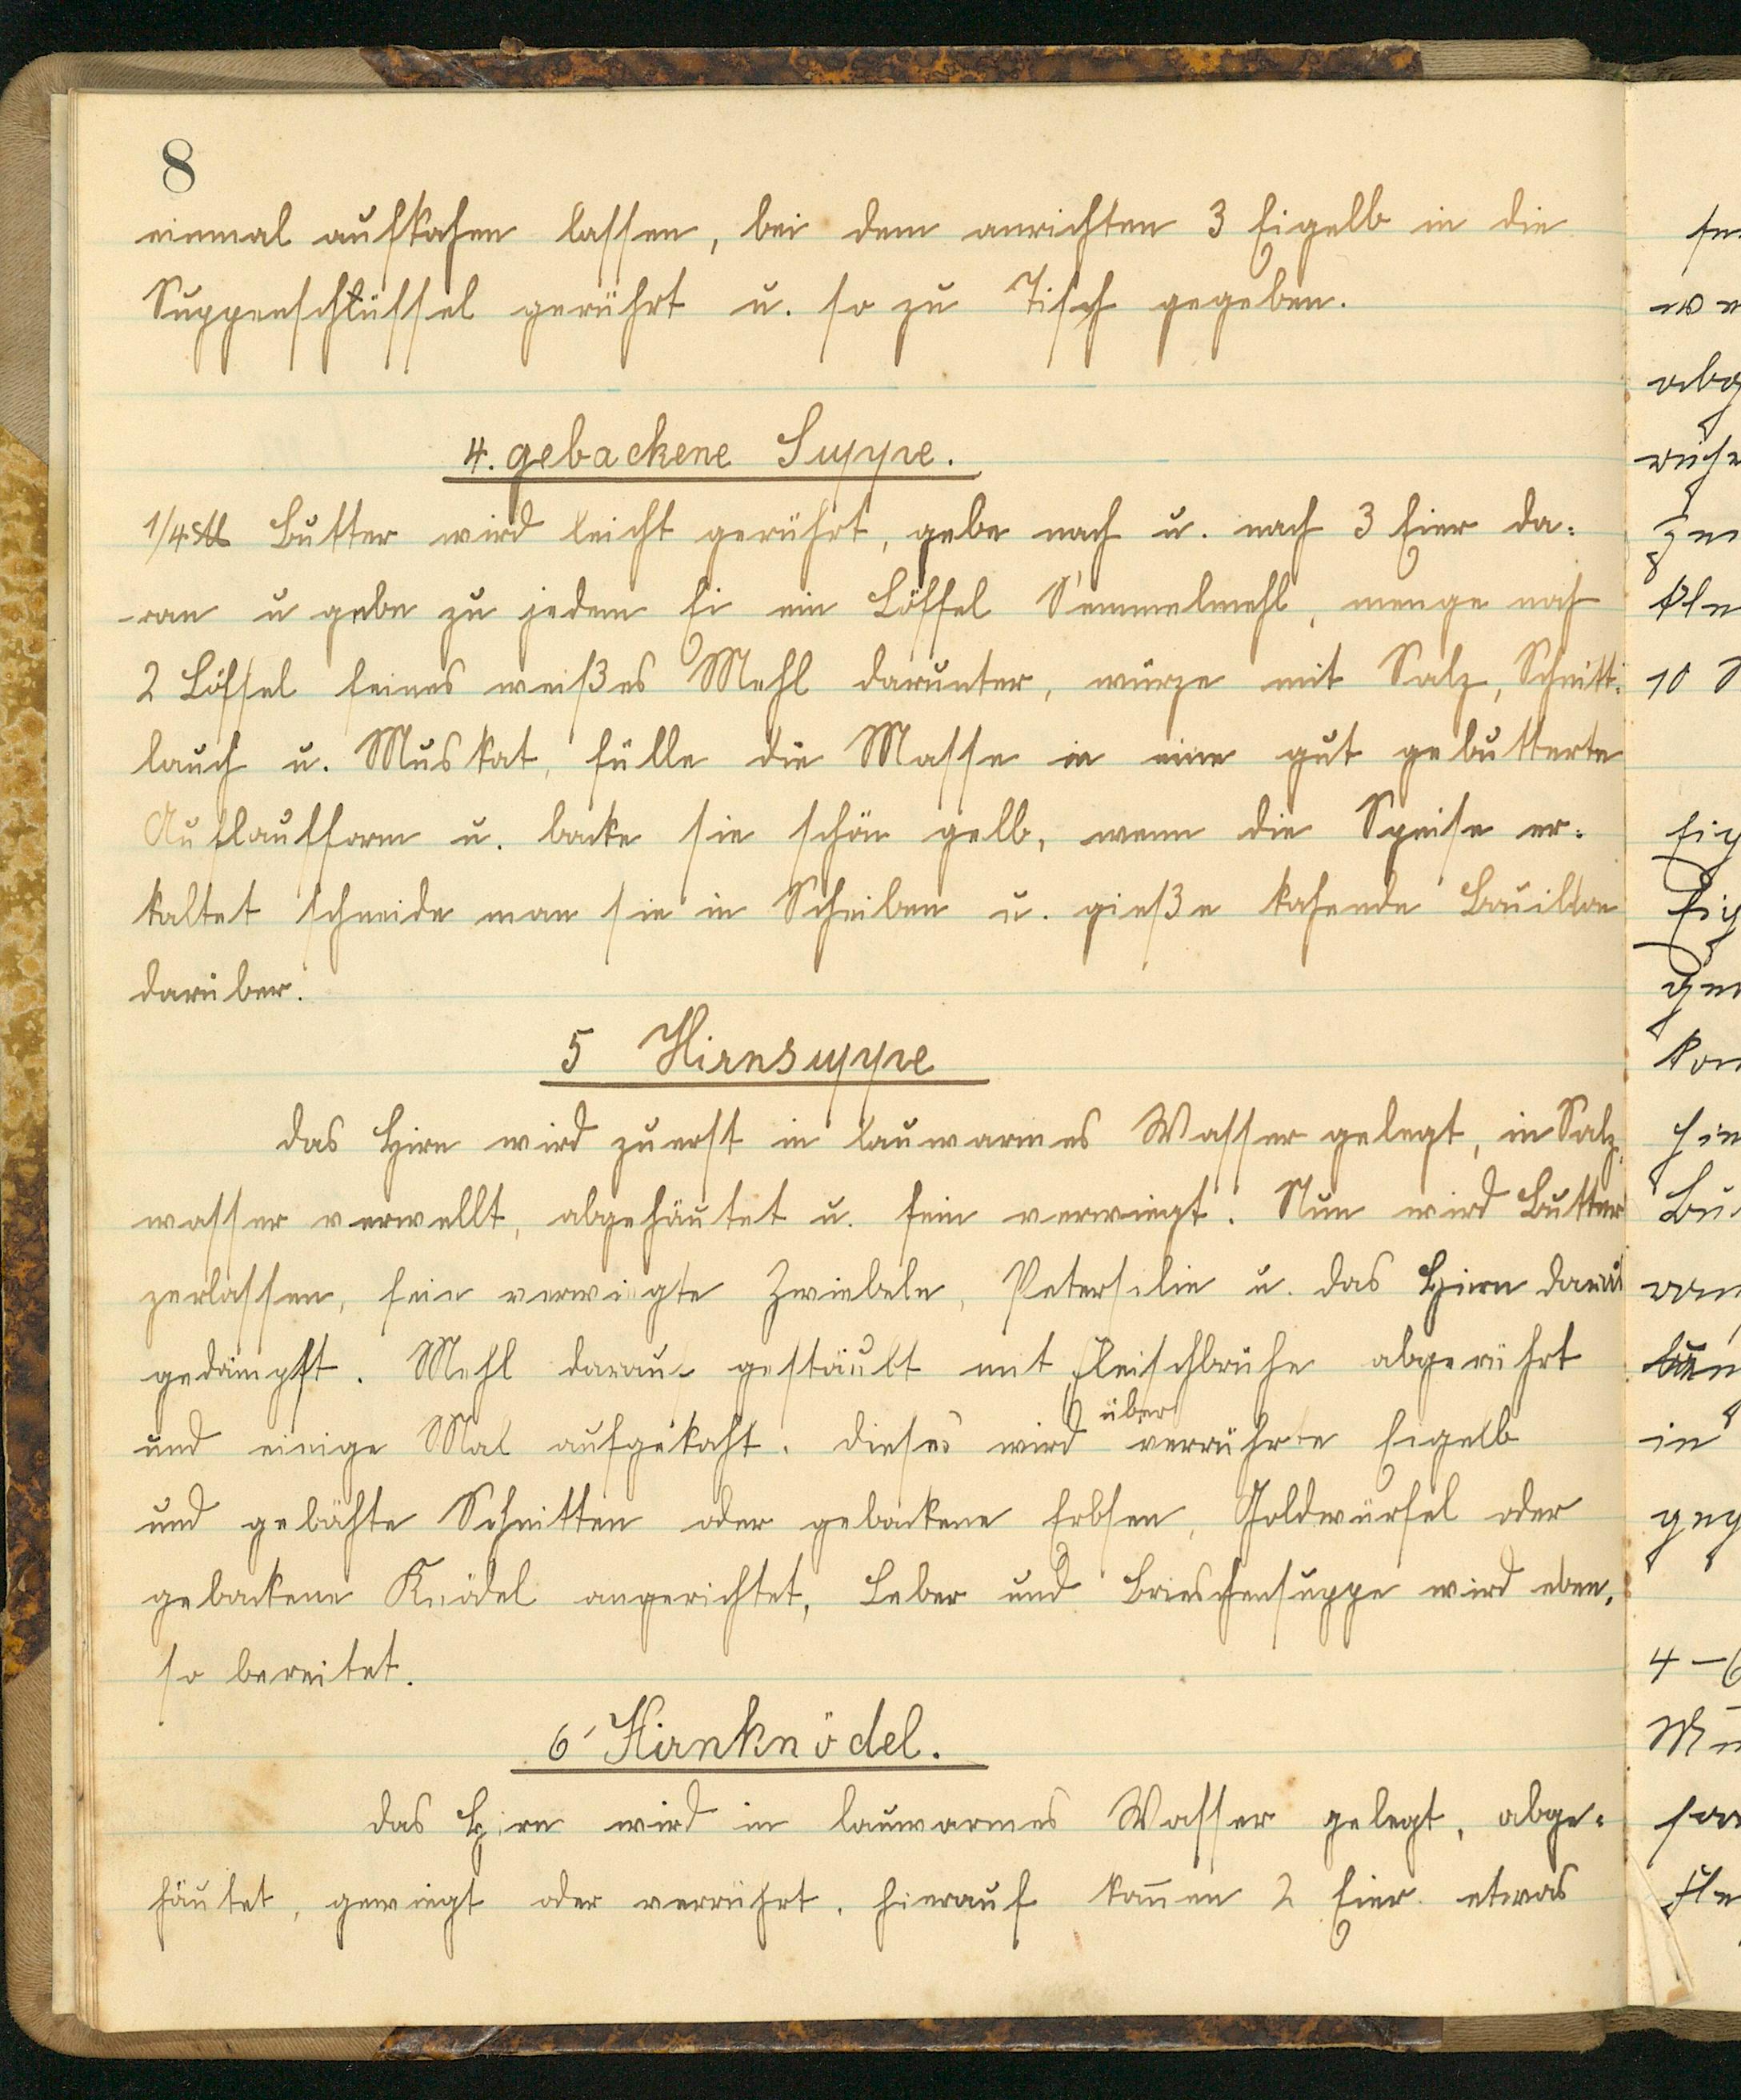 8
einmal aufkochen lassen, bei dem anrichten 3 Eigelb in die
Suppenschlüssel gerührt u. so zu Tisch gegeben.
4. gebackene Suppe.
1/4 ℔ Butter wird leicht gerührt, gebe nach u. nach 3 Eier da:
-ran u gebe zu jedem Ei ein Löffel Semmelmehl, menge noch
2 Löffel feines weißes Mehl darunter, würze mit Salz, Schnitt:
lauch u. Muskat, fülle die Masse in eine gut gebutterte
Auflaufform u. backe sie schön gelb, wenn die Speise er:
kaltet schneide man sie in Scheiben u. gieße kochende Bouillon
darüber.
5 Hirnsuppe
das Hirn wird zuerst in lauwarmes Wasser gelegt, in Salz,
wasser verwellt, abgehäutet u. fein verwiegt. Nun wird Butter
zerlassen, fein verwiegte Zwiebeln, Petersilie u. das Hirn darin
gedämpft. Mehl darauf gestäubt mit Fleischbrühe abgerührt
und einige Mal aufgekocht. dieses wird über verrührte Eigelb
und gebähte Schnitten oder gebackene Erbsen, Goldwürfel oder
gebackene Knödel angerichtet, Leber und Brieschensuppe wird eben,
so bereitet.
6 Hirnknödel.
das Hirn wird in lauwarmes Wasser gelegt, abge:
häutet, gewiegt oder verrührt, hierauf kommen 2 Eier etwas